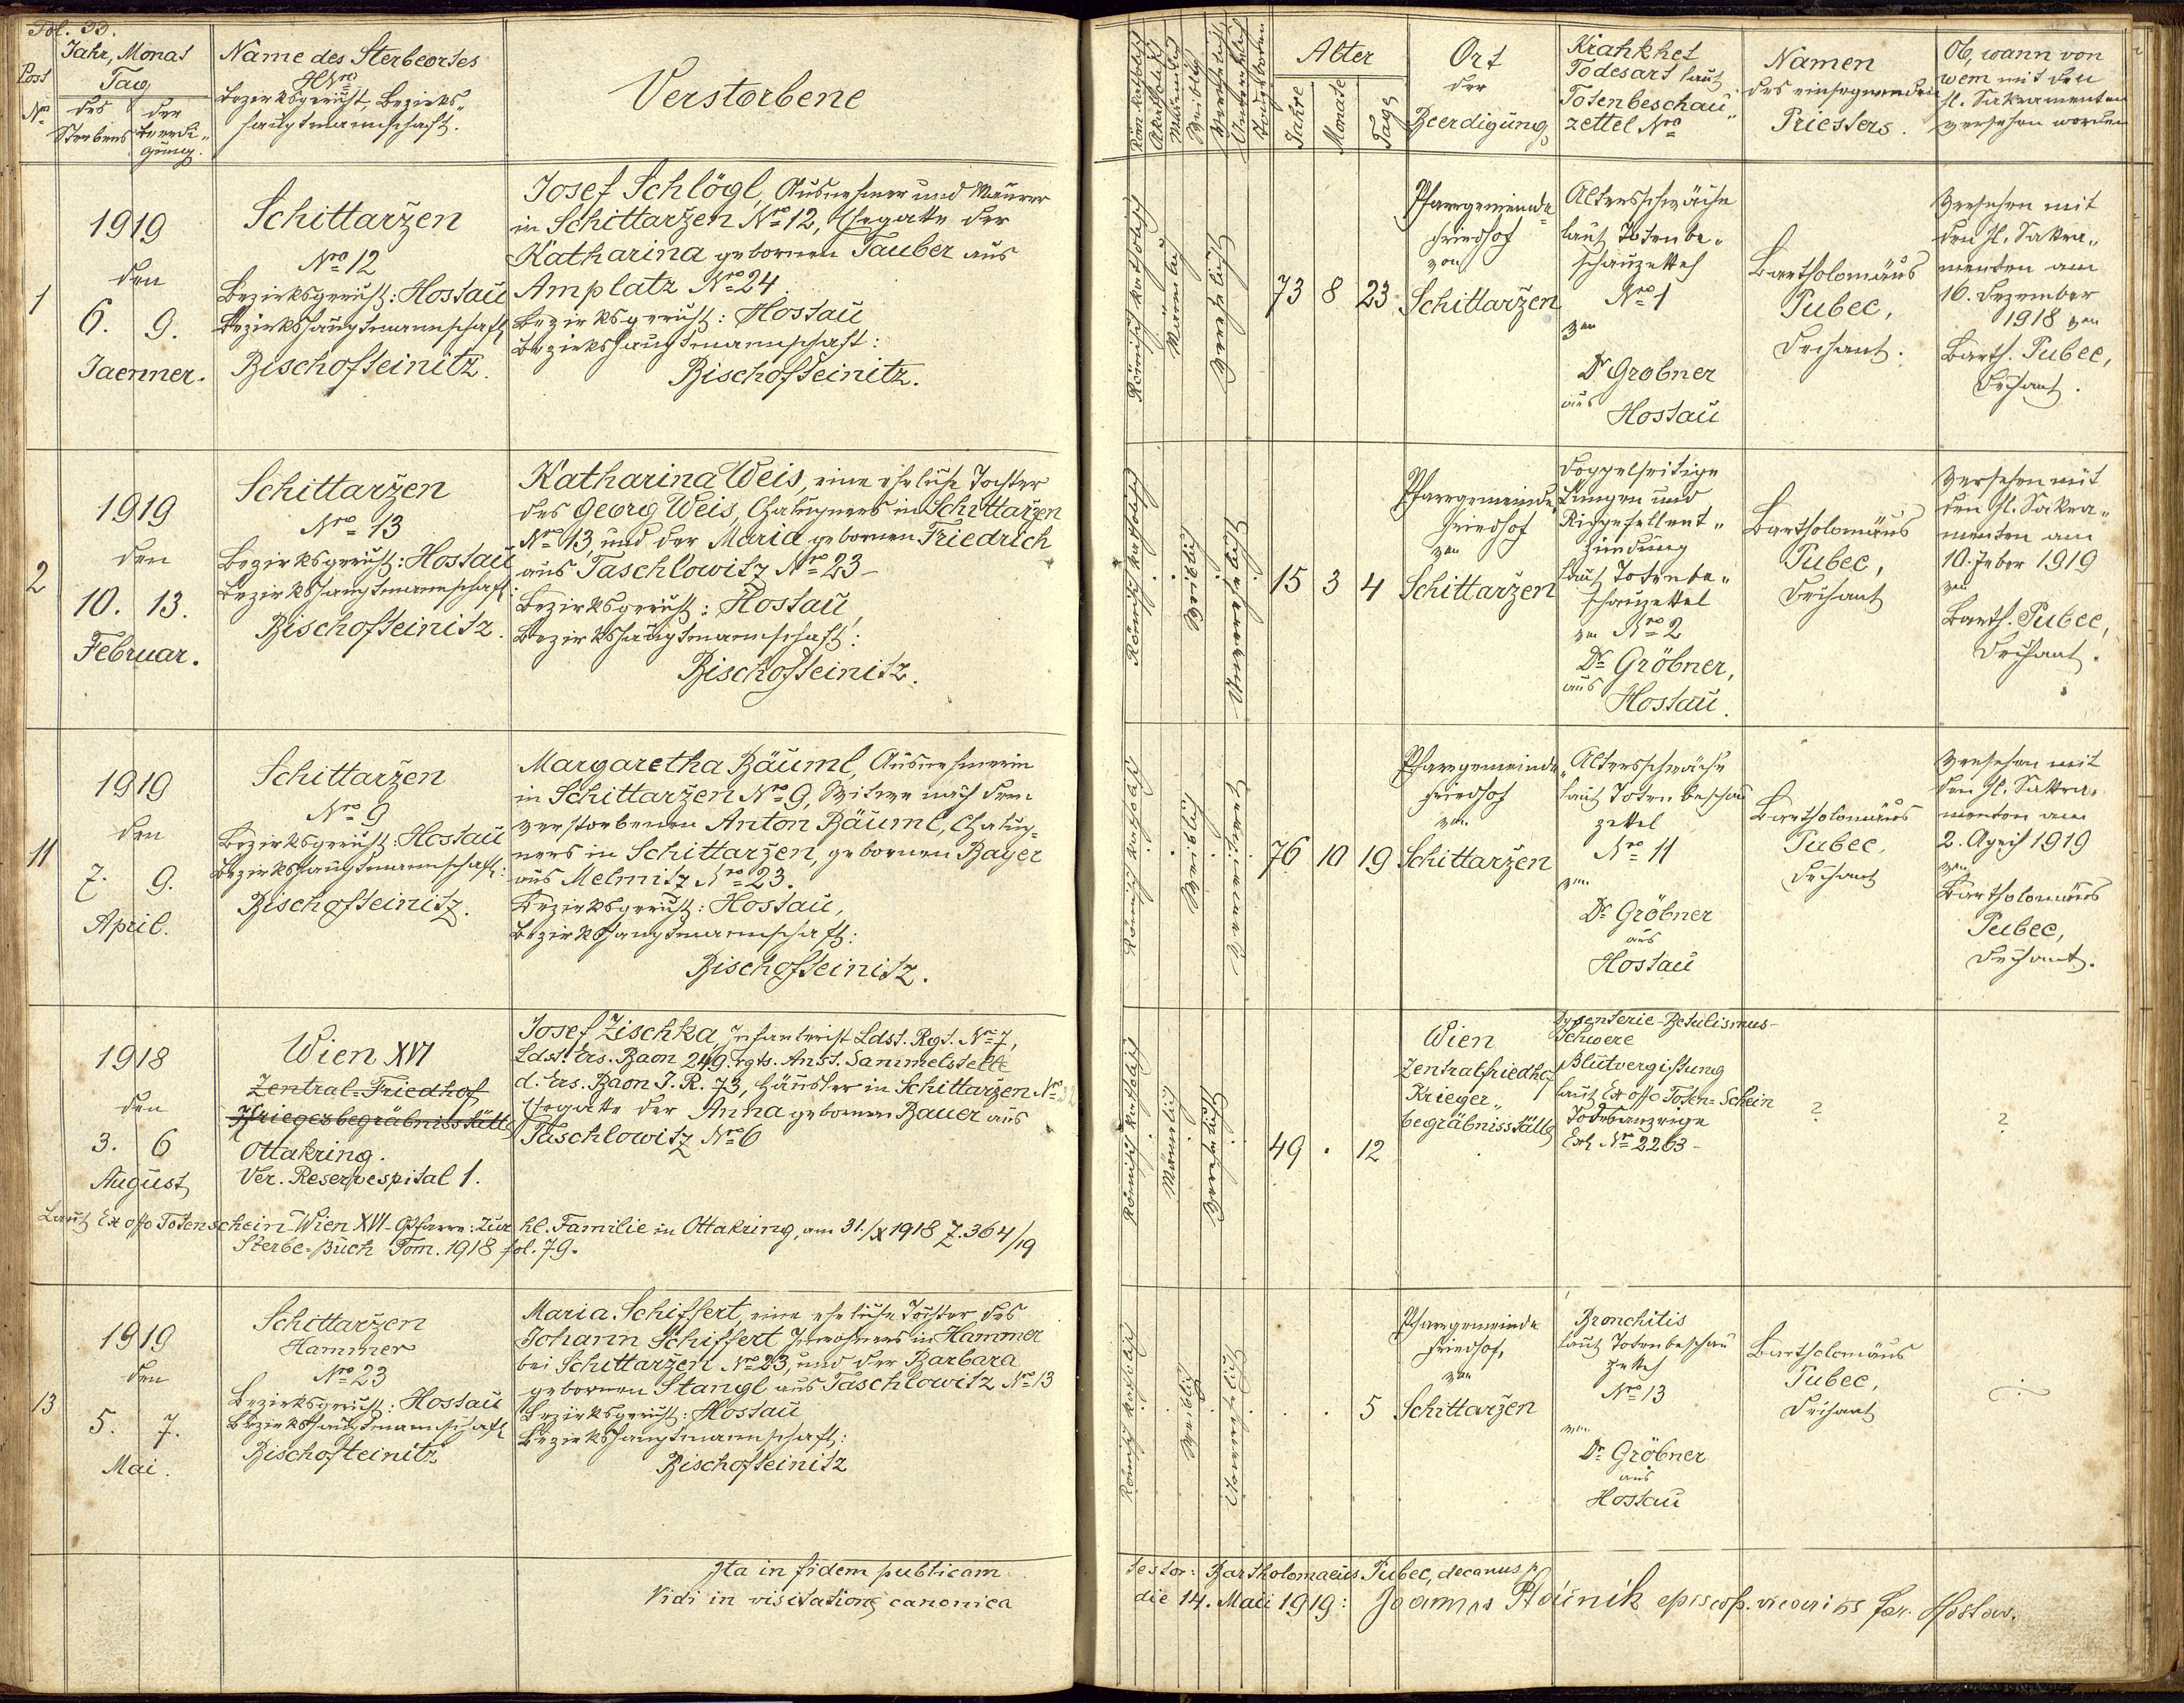 Fol. 33.
Post
Nro
Jahr, Monat
Tag
des
Sterbens
der
Beerdi-
gung.
Name des Sterbeortes
HNro
Bezirksgericht, Bezirks-
hauptmannschaft.
Verstorbene
Röm. katholisch
Akatholisch
Männlich
Weiblich
Alter
Jahre
Monate
Tage
Ort
der
Beerdigung
Krankheit
Todesart laut
Totenbeschau-
zettel Nro
Namen
des einsegnenden
Priesters.
Ob, wann von
wem mit den
hl. Sakramenten
versehen worden
1
1919
den
6. 9.
Jaenner.
Schittarzen
Nro 12
Bezirksgericht: Hostau
Bezirkshauptmannschaft
Bischofteinitz.
Josef Schlögl, Ausnehmer und Maurer
in Schittarzen Nro 12, Ehegatte der
Katharina gebornen Tauber aus
Amplatz Nro 24.
Bezirksgericht: Hostau
Bezirkshauptmannschaft:
Bischofteinitz.
Römisch katholisch
Männlich
Verehelicht
73 8 23
Pfarrgemeinde-
friedhof
von
Schittarzen
Altersschwäche
laut Totenbe-
schauzettel
Nro 1
von
Dr Grobner
aus
Hostau
Bartholomäus
Pubec,
Dechant.
Versehen mit
den hl. Sakra-
menten am
16. Dezember
1918 von
Barth. Pubec,
Dechant.
2
1919
den
10. 13.
Februar.
Schittarzen
Nro 13
Bezirksgericht: Hostau
Bezirkshauptmannschaft:
Bischofteinitz.
Katharina Weis, eine eheliche Tochter
des Georg Weis, Chalupners in Schittarzen
Nro 13, und der Maria gebornen Friedrich
aus Taschlowitz Nro 23 -
Bezirksgericht: Hostau
Bezirkshauptmannschaft:
Bischofteinitz.
Römisch katholisch
Weiblich
Unverehelicht
15 3 4
Pfarrgemeinde-
friedhof
von
Schittarzen
Doppelseitige
Lungen und
Rippefellent-
zündung
laut Totenbe-
schauzettel
von Nro 2
Dr Gröbner,
aus
Hostau.
Bartholomäus
Pubec,
Dechant
Versehen mit
den hl. Sakra-
menten am
10. Feber 1919
von
Barth. Pubec,
Dechant.
11
1919
den
7. 9.
April.
Schittarzen
Nro 9
Bezirksgericht: Hostau
Bezirkshauptmannschaft:
Bischofteinitz.
Margaretha Bäuml, Ausnehmerin
in Schittarzen Nro 9, Witwe nach dem
verstorbenen Anton Bäuml, Chalup-
ners in Schittarzen, gebornen Bayer
aus Melmitz Nro 23.
Bezirksgericht: Hostau,
Bezirkshauptmannschaft:
Bischofteinitz.
Römisch katholisch
Weiblich
Verwitwet
76 10 19
Pfarrgemeinde-
friedhof
von
Schittarzen
Altersschwäche
laut Totenbeschau
zettel
Nro 11
von
Dr Gröbner
aus
Hostau
Bartholomäus
Pubec,
Dechant
Versehen mit
den hl. Sakra-
menten am
2. April 1919
von
Bartholomäus
Pubec,
Dechant.
1918
den
3. 6
August
Wien XVI
Zentral-Friedhof
Kriegerbegräbnisstätte
Ottakring.
Ver. Reservespital 1.
Josef Zischka, Infanterist Ldst. Rgt. Nro 7,
Ldst. Ers. Baon 249. rgts. Anst. Sammelstelle
d. Ers. Baon I. R. 73, Häusler in Schittarzen Nro 32
Ehegatte der Anna gebornen Bauer aus
Taschlowitz Nro 6
Römisch katholisch
Männlich
Verehelicht
49 . 12
Wien
Zentralfriedhof
Krieger-
begräbnisstätte
Dysenterie-Betulismus-
Schwere
Blutvergiftung
laut Ex offo Toten-Schein
Todesanzeige
Exh Nro 2263 -
?
?
Laut Ex offo Totenschein-Wien XVI-Pfarre: Zur hl. Familie in Ottakring, am 31./X 1918 Z. 364/19
Sterbe-Buch Tom. 1918 fol. 79.
13
1919
den
5. 7.
Mai.
Schittarzen
Hammer
Nro 23
Bezirksgericht: Hostau
Bezirkshauptmannschaft
Bischofteinitz
Maria Schiffert, eine eheliche Tochter des
Johann Schiffert Inwohners in Hammer
bei Schittarzen Nro 23, und der Barbara
gebornen Stangl aus Taschlowitz Nro 13
Bezirksgericht: Hostau
Bezirkshauptmannschaft:
Bischofteinitz
Römisch katholisch
Weiblich
Unverehelicht
. . 5
Pfarrgemeinde
friedhof,
von
Schittarzen
Bronchitis
laut Totenbeschau
zettel
Nro 13
von
Dr Gröbner
aus
Hostau
Bartholomäus
Pubec,
Dechant
Ita in fidem publicam testor: Bartholomaeus Pubec, decanus
Vidi in visitatione canonica die 14. Maii 1919: Joannes Ptáčník episcop. vicarius for. Hostov.